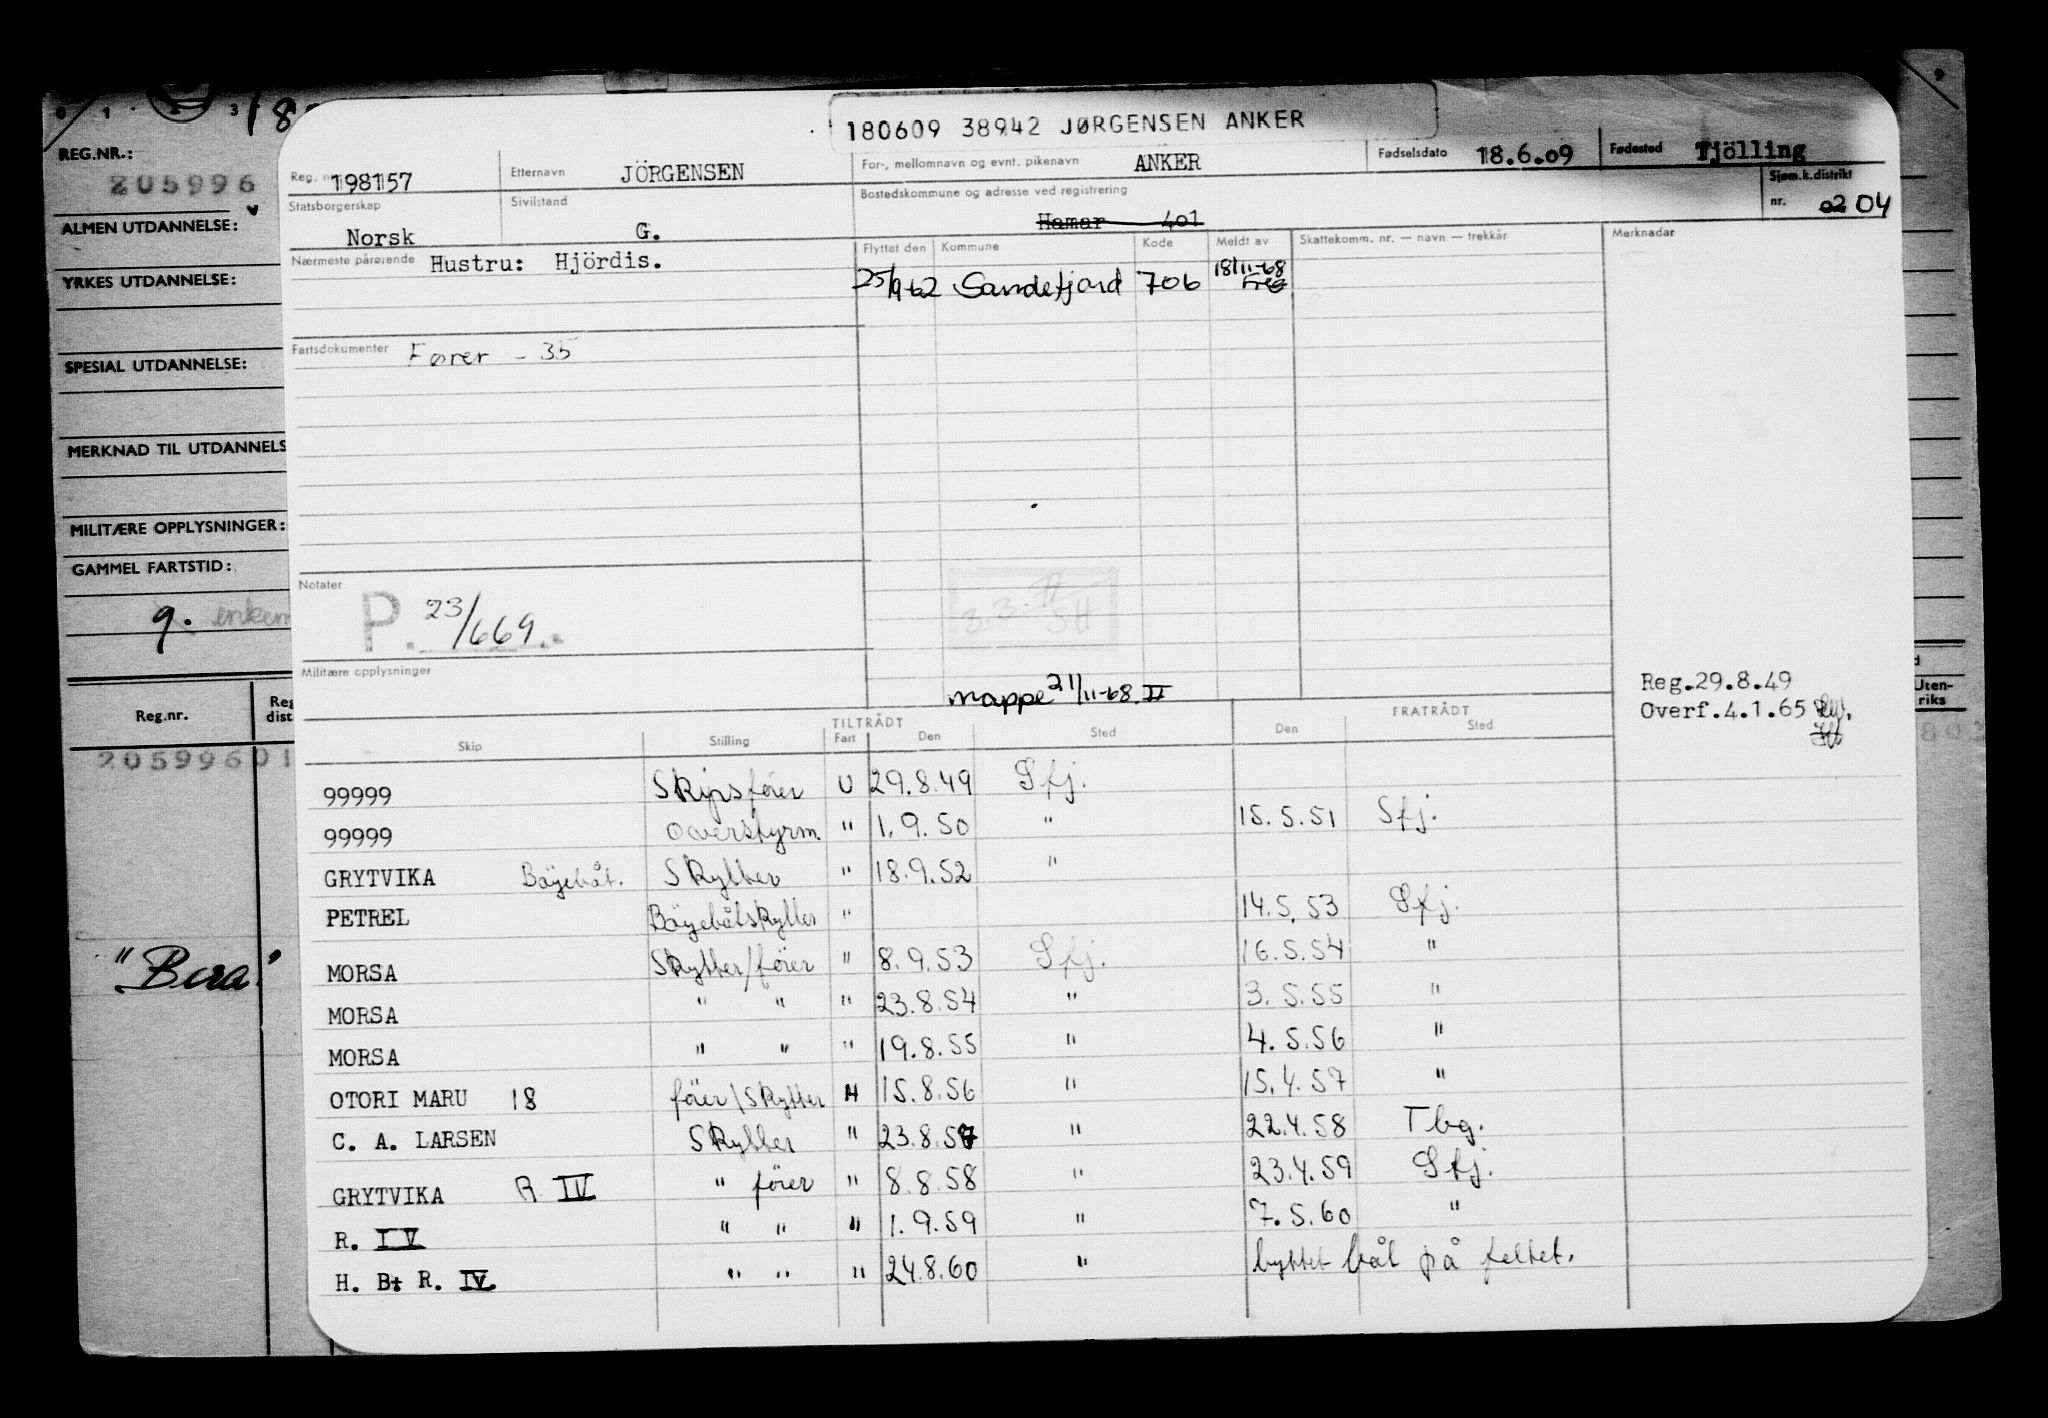 0 1 2 3
9
REG.NR.:
205996
ALMEN UTDANNELSE:
YRKES UTDANNELSE:
SPESIAL UTDANNELSE:
MERKNAD TIL UTDANNELS
MILITÆRE OPPLYSNINGER:
GAMMEL FARTSTID:
9.
Reg.nr. Reg dist
20599601
"Bera"
Uten-
riks
180609 38942 JØRGENSEN ANKER
Reg. n 198157 Etternavn JÖRGENSEN For-, mellomnavn og evnt. pikenavn ANKER Fødselsdato 18.6.09 Fødested Tjölling
Statsborgerskap Norsk Sivilstand G. Bostedskommune og adresse ved registrering Hamar 401 Sjøm.k.distrikt nr. 02 04
Nærmeste pårørende Hustru: Hjördis.
Flyttet den Kommune Kode Meldt av Skattekomm. nr. — navn — trekkår Merknadar
25/9-62 Sandefjord 706 18/11-68
Fartsdokumenter Fører - 35
Notater
P. 23/669.
3.3.77
SH
Militære opplysninger
mappe 21/11-68 II
Reg.29.8.49
Overf.4.1.65
TILTRÅDT FRATRÅDT
Skip Stilling Fart Den Sted Den Sted
99999 Skipsförer U 29.8.49 Sfj.
99999 Overstyrm. " 1.9.50 " 15.5.51 Sfj.
GRYTVIKA Böyebåt. Skytter " 18.9.52 "
PETREL Böyebåtskytter " 14.5.53 Sfj.
MORSA Skytter/förer " 8.9.53 Sfj. 16.5.54 "
MORSA " " " 23.8.54 " 3.5.55 "
MORSA " " " 19.8.55 " 4.5.56 "
OTORI MARU 18 förer/Skytter H 15.8.56 " 15.4.57 "
C. A. LARSEN Skytter " 23.8.57 " 22.4.58 Tbg.
GRYTVIKA R IV " förer " 8.8.58 " 23.4.59 Sfj.
R. IV " " " 1.9.59 " 7.5.60 "
H. Bt R. IV. " " " 24.8.60 " byttet båt på feltet.